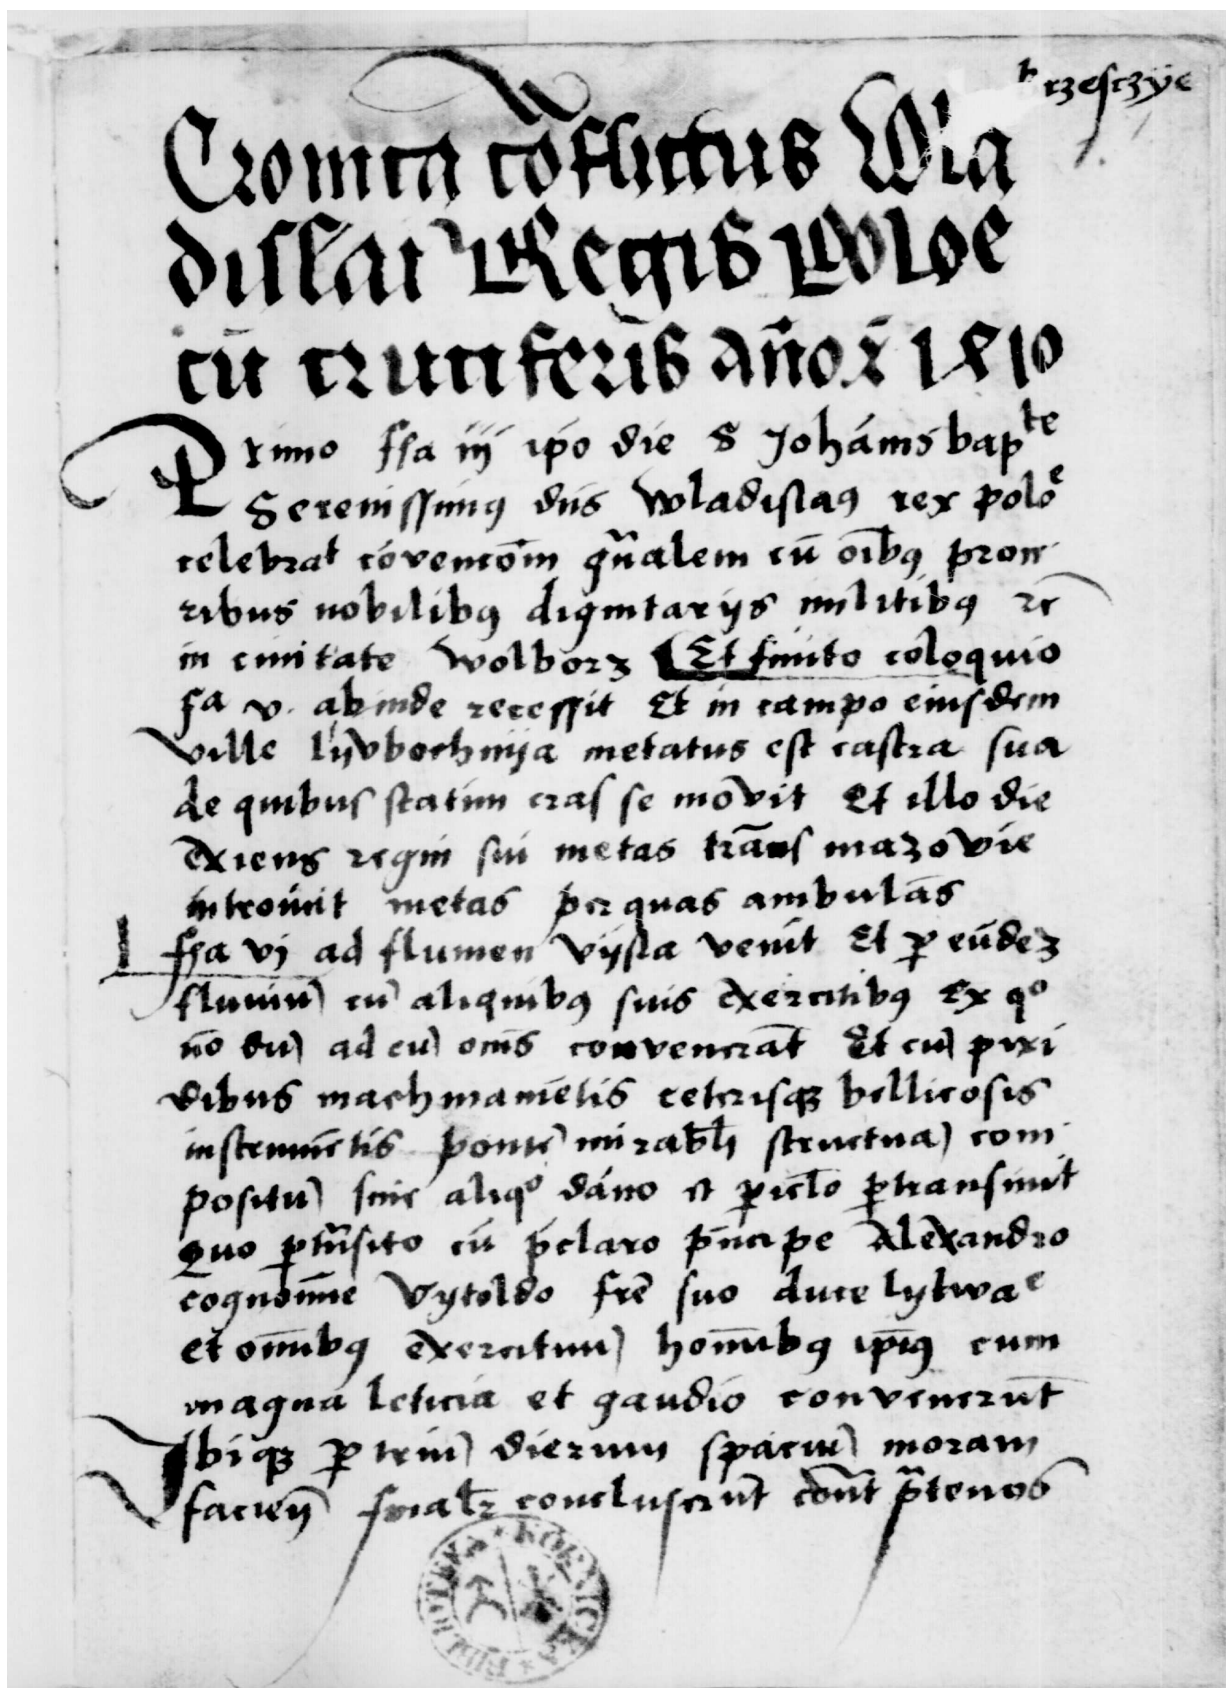 trzesczye
Cronica cōflictus Wla
dislai Regis Poloe
cū cruciferis año x̄ 1410
Primo ffa iij ip̄o die S Johānis bapte
Serenissimꝯ dn̄s Wladislaꝯ rex poloe
celebrat cōvencōm gn̄alem cū oībꝯ proce
ribus nobilibꝯ dignitarijs militibꝯ rc̄
in civitate wolborz Et finito coloquio
fa v. abinde recessit Et in campo eiusdem
ville lyvbochnija metatus est castra sua
de quibus statim cras se movit Et illo die
exiens regni sui metas trāns mazovie
introivit metas per quas ambulās
ffa vj ad flumen vysla venit Et ꝑ eūdeʒ
fluviū cū aliquibꝯ suis exercitibꝯ Ex qo
nō dū ad eū om̄s convenerāt Et cū pixi
dibus machinamētis ceterisqꝫ bellicosis
instrumētis pontē mirabl̄i structura com
positū sine aliqo dāno et ꝑicl̄o ꝑtransivit
Quo ꝑtn̄sito cū p̄claro pn̄cipe Alexandro
cognomīe Vytoldo fr̄e suo duce lytwae
et omībꝯ exercituū homībꝯ ip̄iꝯ cum
magna leticia et gaudio convenerūt
Ibiqꝫ ꝑ triū dierum spaciū moram
facieñ finalr̄ concluserūt cont̄ prtenos
BIBLIOTEKA * KÓRNICKA *